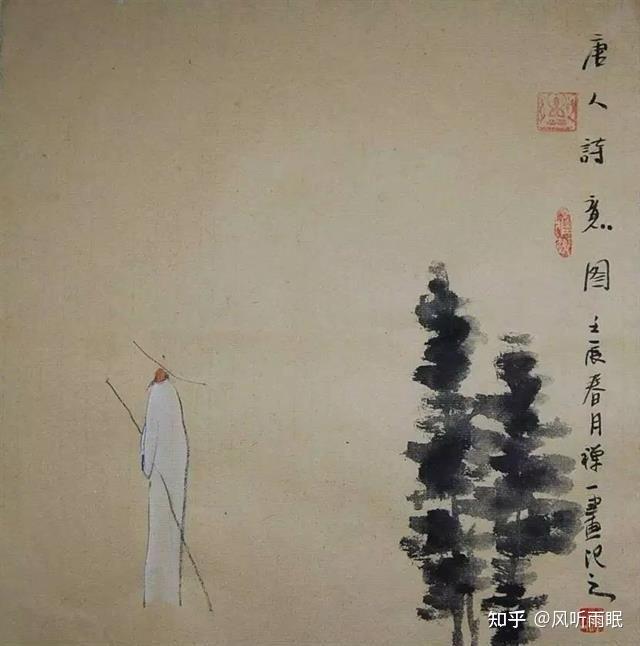 唐人詩意图 壬辰春月禅一畫记之
知乎 @风听雨眠